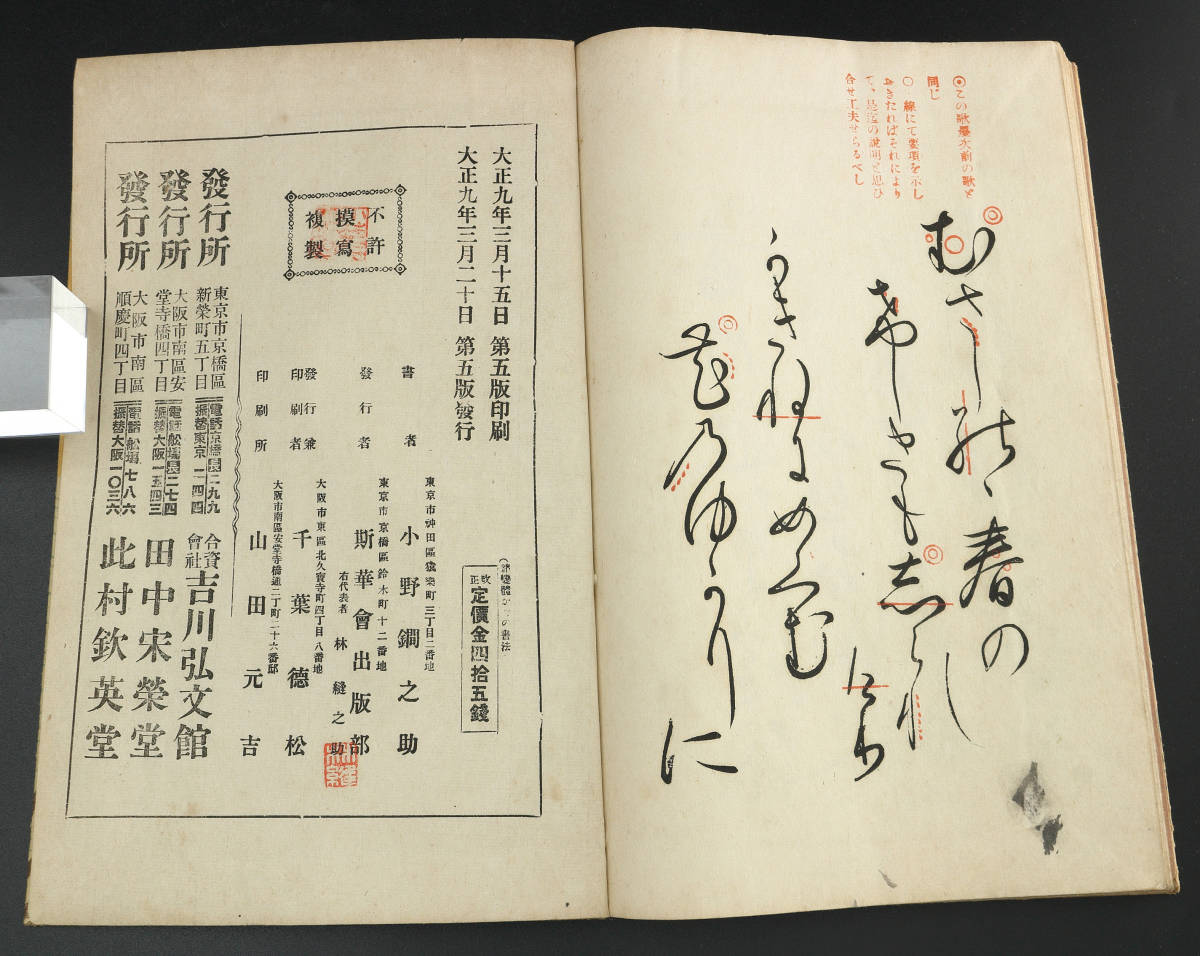 ◎この歌墨次前の歌と
同じ
○線にて要項を示し
おきたればそれにより
て、是迄の說明と思ひ
合せ工夫せらるべし
むさし野の春の
けしきもしられ
けり
かきねにめくむ
花のゆかりに
大正九年三月十五日 第五版印刷
大正九年三月二十日 第五版發行
不許
摸寫
複製
改正 定價金四拾五錢
書者
東京市神田區猿樂町三丁目二番地
小野鐧之助
發行者
東京市京橋區鈴木町十二番地
斯華會出版部
右代表者 林縫之助
發行兼
印刷者
大阪市東區北久寶寺町四丁目八番地
千葉德松
印刷所
大阪市南區安堂寺橋通二丁町二十六番邸
山田元吉
發行所
東京市京橋區
新榮町五丁目
電話京橋長二九九
振替東京二四四
合資
會社
吉川弘文館
發行所
大阪市南區安
堂寺橋四丁目
電話船場長二七四
振替大阪一五四三
田中宋榮堂
發行所
大阪市南區
順慶町四丁目
電話船場七八六
振替大阪一〇三六
此村欽英堂